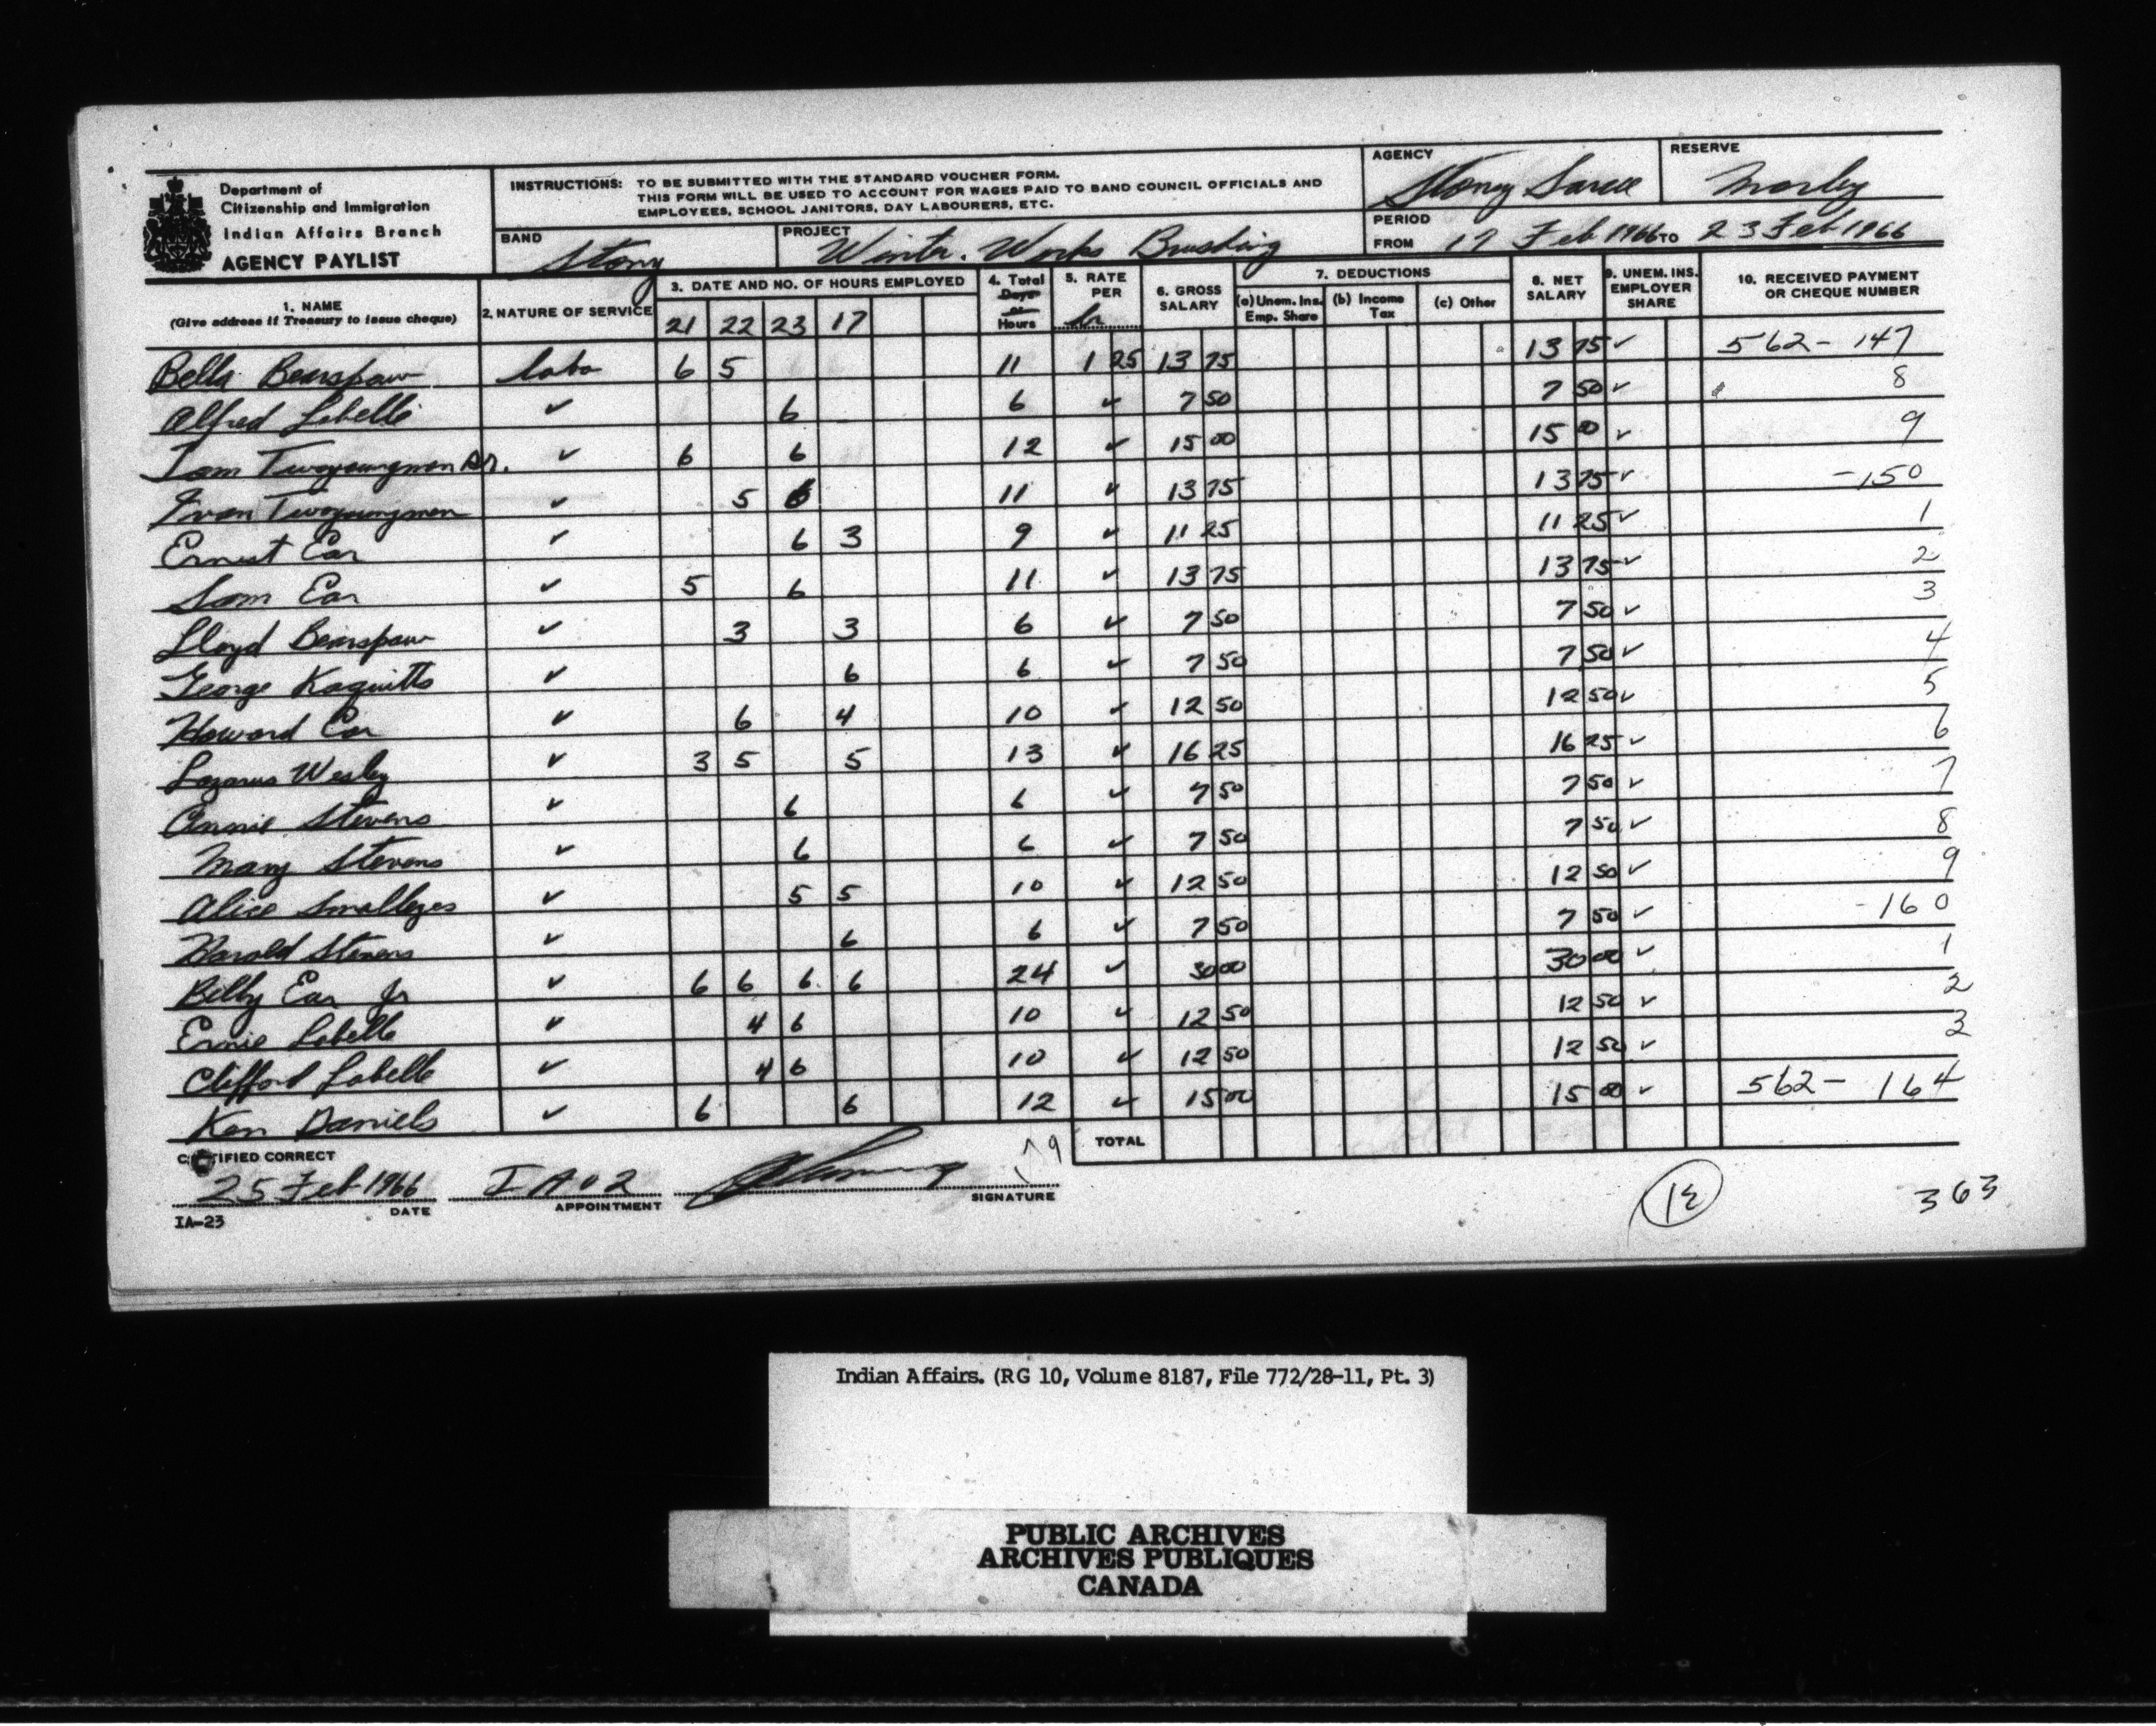 Department of
Citizenship and Immigration
Indian Affairs Branch
AGENCY PAYLIST
INSTRUCTIONS: TO BE SUBMITTED WITH THE STANDARD VOUCHER FORM.
THIS FORM WILL BE USED TO ACCOUNT FOR WAGES PAID TO BAND COUNCIL OFFICIALS AND
EMPLOYEES, SCHOOL JANITORS, DAY LABOURERS, ETC.
AGENCY Stony Sarcee
RESERVE Morley
BAND Stony
PROJECT Winter Works Brushing
PERIOD
FROM 17 Feb 1966 TO 23 Feb 1966
1. NAME
(Give address if Treasury to issue cheque)
2. NATURE OF SERVICE
3. DATE AND NO. OF HOURS EMPLOYED
21 22 23 17
4. Total
Days
or
Hours
5. RATE
PER
hr
6. GROSS
SALARY
7. DEDUCTIONS
(a) Unem. Ins.
Emp. Share
(b) Income
Tax
(c) Other
8. NET
SALARY
9. UNEM. INS.
EMPLOYER
SHARE
10. RECEIVED PAYMENT
OR CHEQUE NUMBER
Bella Bearspaw labo 6 5 11 1 25 13 75 13 75 ✓ 562 - 147
Alfred Labelle ✓ 6 6 ✓ 7 50 7 50 ✓ 8
Tom Twoyoungmen Sr. ✓ 6 6 12 ✓ 15 00 15 00 ✓ 9
Ivan Twoyoungmen ✓ 5 6 11 ✓ 13 75 13 75 ✓ -150
Ernest Ear ✓ 6 3 9 ✓ 11 25 11 25 ✓ 1
Sam Ear ✓ 5 6 11 ✓ 13 75 13 75 ✓ 2
Lloyd Bearspaw ✓ 3 3 6 ✓ 7 50 7 50 ✓ 3
George Kaquitts ✓ 6 6 ✓ 7 50 7 50 ✓ 4
Howard Ear ✓ 6 4 10 ✓ 12 50 12 50 ✓ 5
Lazarus Wesley ✓ 3 5 5 13 ✓ 16 25 16 25 ✓ 6
Annie Stevens ✓ 6 6 ✓ 7 50 7 50 ✓ 7
Mary Stevens ✓ 6 6 ✓ 7 50 7 50 ✓ 8
Alice Smalleyes ✓ 5 5 10 ✓ 12 50 12 50 ✓ 9
Harold Stevens ✓ 6 6 ✓ 7 50 7 50 ✓ -160
Billy Ear Jr ✓ 6 6 6 6 24 ✓ 30 00 30 00 ✓ 1
Ernie Labelle ✓ 4 6 10 ✓ 12 50 12 50 ✓ 2
Clifford Labelle ✓ 4 6 10 ✓ 12 50 12 50 ✓ 3
Ken Daniels ✓ 6 6 12 ✓ 15 00 15 00 ✓ 562 - 164
TOTAL
CERTIFIED CORRECT
25 Feb 1966 I A 02
DATE APPOINTMENT SIGNATURE
IA-23
363
Indian Affairs. (RG 10, Volume 8187, File 772/28-11, Pt. 3)
PUBLIC ARCHIVES
ARCHIVES PUBLIQUES
CANADA